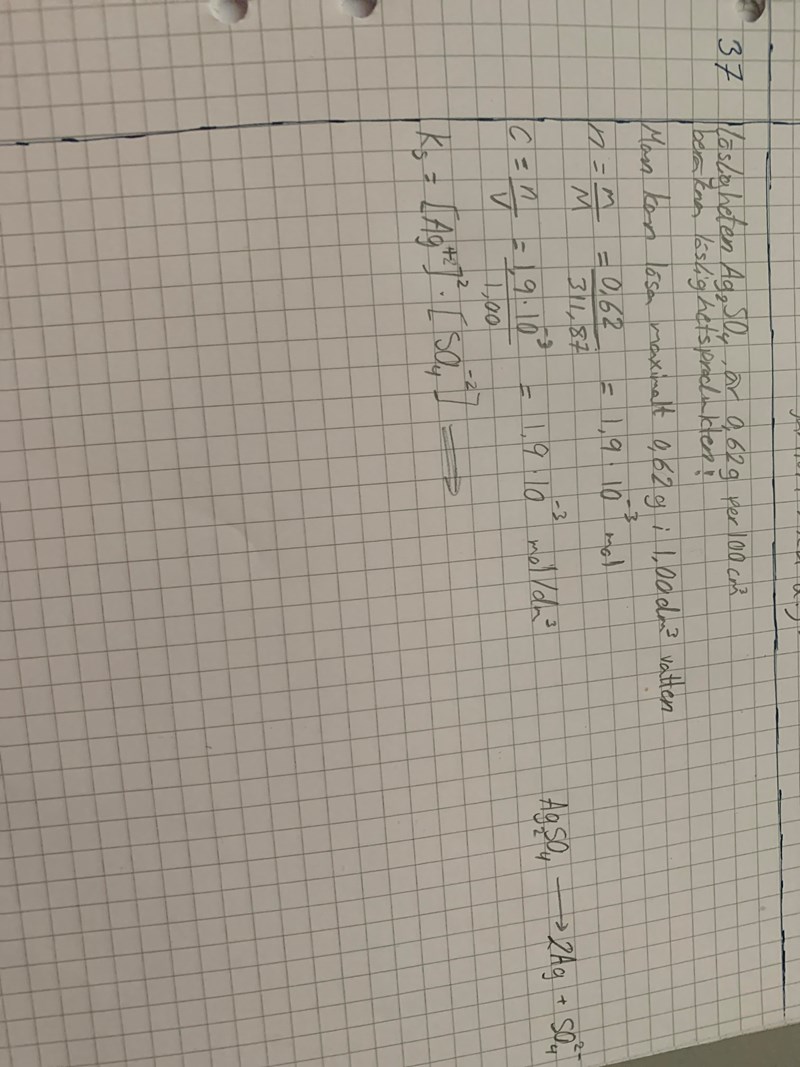 37
Lösligheten Ag₂SO₄, är 0,62g per 100 cm³
beräkna löslighetsprodukten!
Man kan lösa maximalt 0,62g i 1,00dm³ vatten
n = m/M = 0,62/311,87 = 1,9 · 10⁻³ mol
C = n/V = 1,9 · 10⁻³/1,00 = 1,9 · 10⁻³ mol/dm³
Ag₂SO₄ → 2Ag + SO₄²⁻
Ks = [Ag⁺²]² · [SO₄⁻²] ⟹